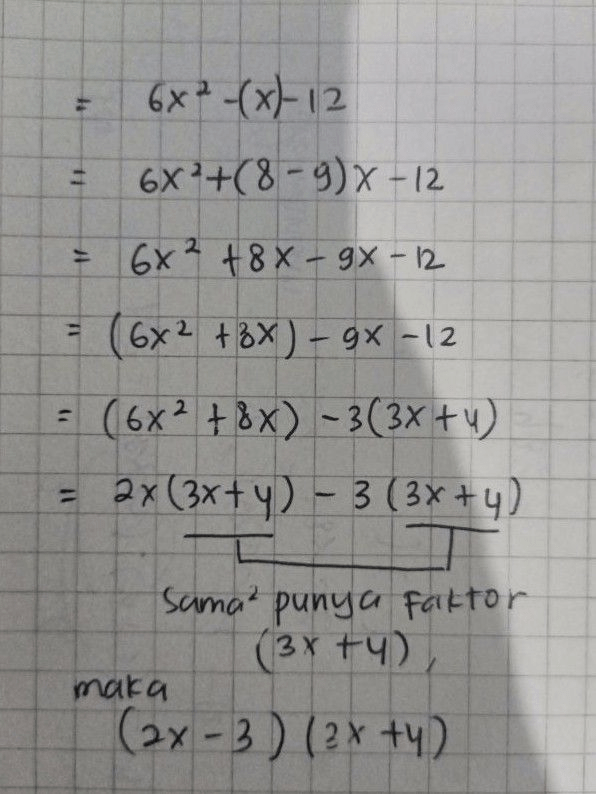 = 6x² -(x)-12
= 6x²+(8-9)x-12
= 6x² +8x-9x-12
= (6x² +8x)-9x-12
= (6x² +8x) -3(3x+4)
= 2x(3x+4) - 3(3x+4)
Sama² punya Faktor
(3x+4),
maka
(2x-3)(3x+4)